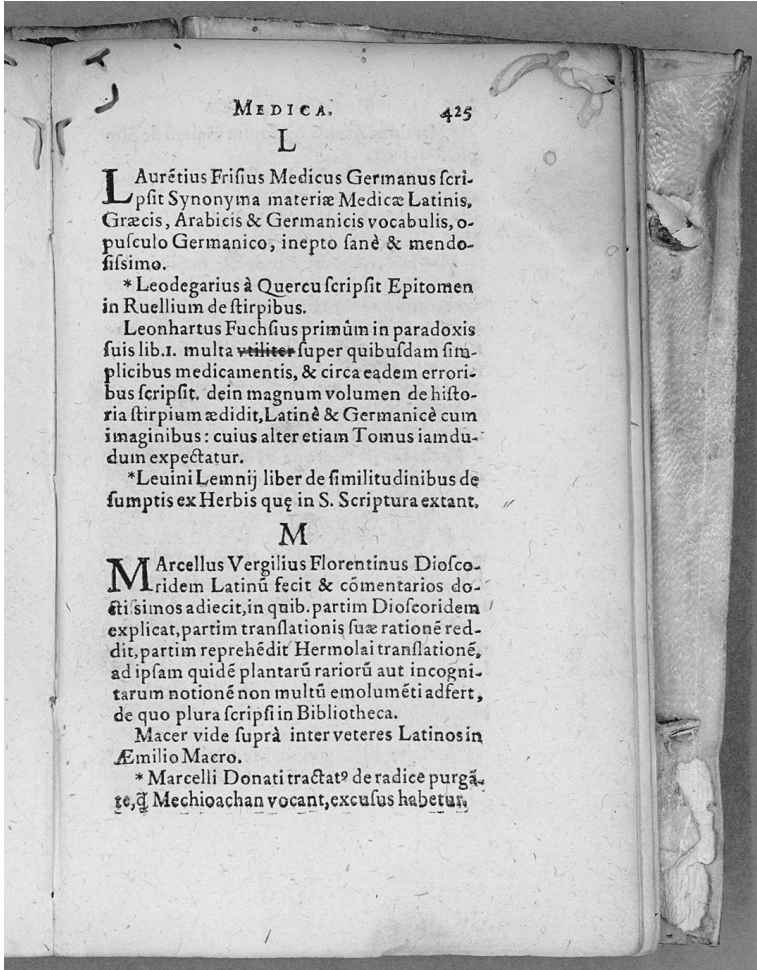 MEDICA. 425
L
LAurẽtius Frisius Medicus Germanus scri-
psit Synonyma materiæ Medicæ Latinis,
Græcis, Arabicis & Germanicis vocabulis, o-
pusculo Germanico, inepto sanè & mendo-
sissimo.
* Leodegarius à Quercu scripsit Epitomen
in Ruellium de stirpibus.
Leonhartus Fuchsius primûm in paradoxis
suis lib.1. multa vtiliter super quibusdam sim-
plicibus medicamentis, & circa eadem errori-
bus scripsit. dein magnum volumen de histo-
ria stirpium ædidit, Latinè & Germanicè cum
imaginibus: cuius alter etiam Tomus iamdu-
dum expectatur.
*Leuini Lemnij liber de similitudinibus de
sumptis ex Herbis quę in S. Scriptura extant.
M
MArcellus Vergilius Florentinus Diosco-
ridem Latinũ fecit & cõmentarios do-
ctissimos adiecit, in quib. partim Dioscoridem
explicat, partim translationis suæ rationẽ red-
dit, partim reprehẽdit Hermolai translationẽ,
ad ipsam quidẽ plantarũ rariorũ aut incogni-
tarum notionẽ non multũ emolumẽti adfert,
de quo plura scripsi in Bibliotheca.
Macer vide suprà inter veteres Latinos in
Æmilio Macro.
* Marcelli Donati tractatꝰ de radice purgã-
te, q̃ Mechioachan vocant, excusus habetur.